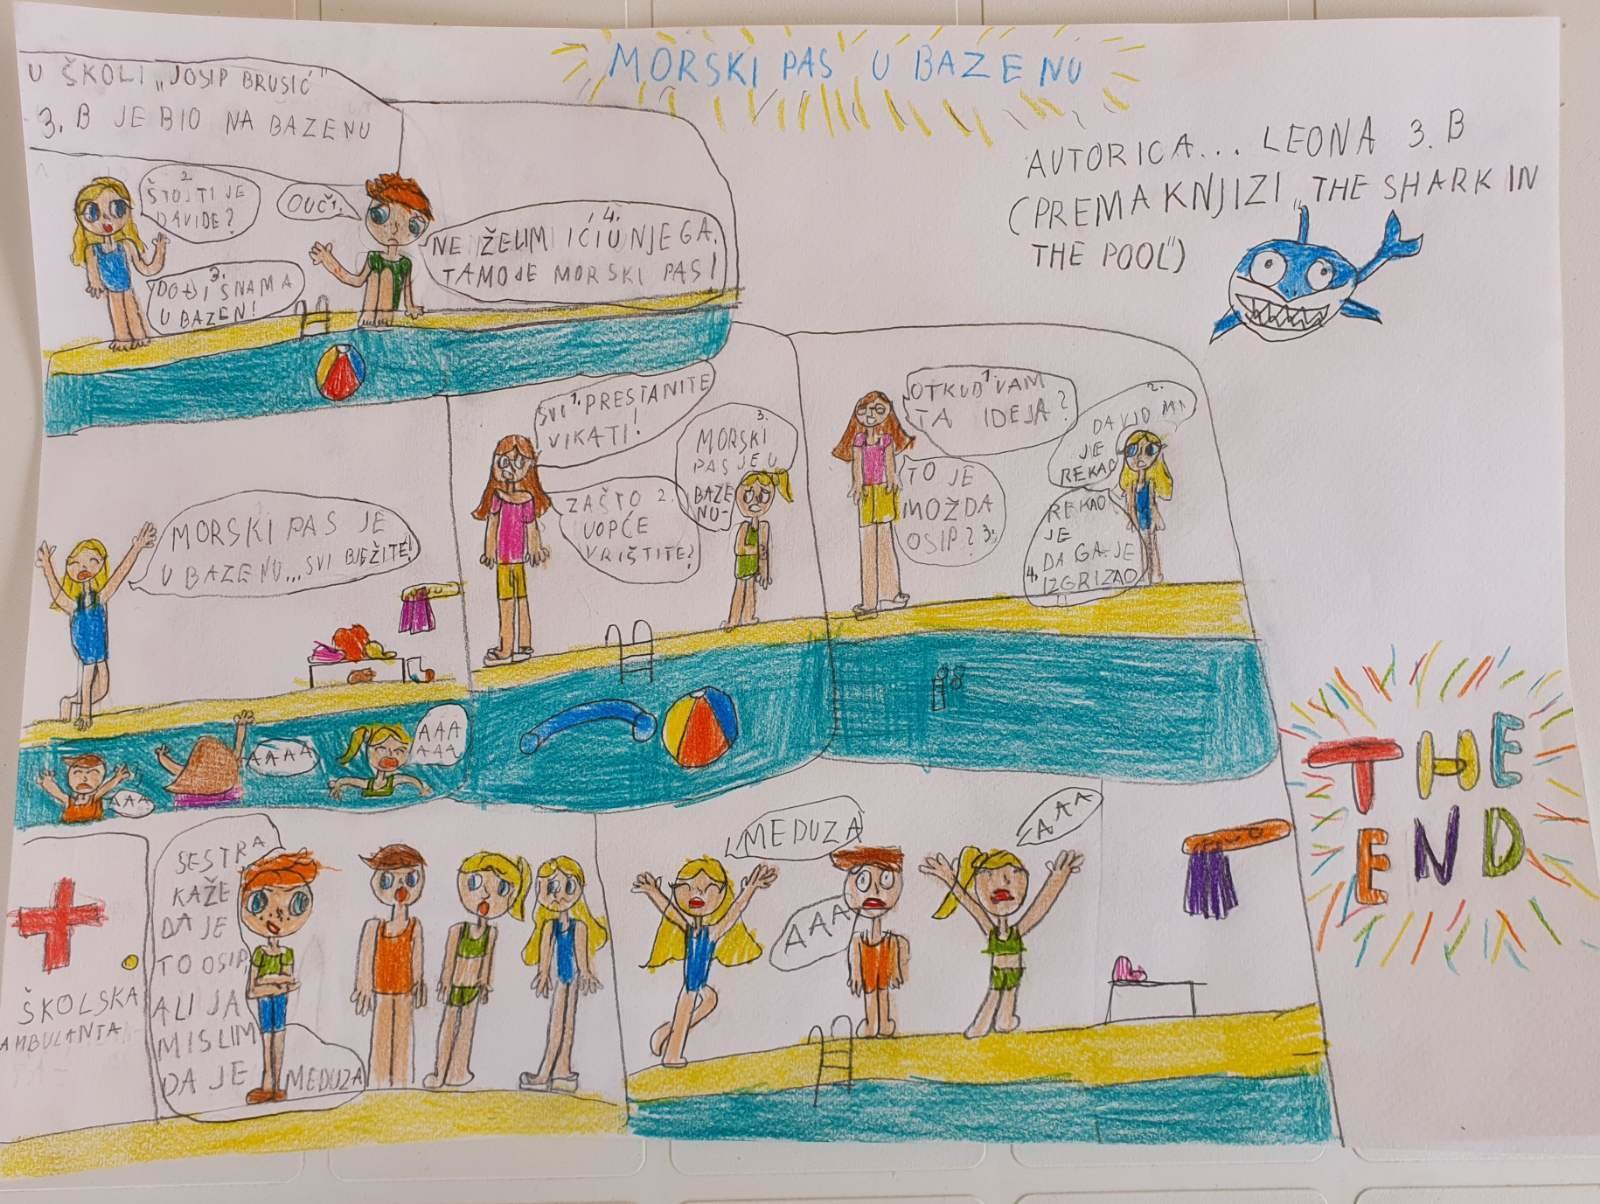 MORSKI PAS U BAZENU
AUTORICA... LEONA 3. B
(PREMA KNJIZI „THE SHARK IN
THE POOL")
U ŠKOLI „JOSIP BRUSIĆ"
3. B JE BIO NA BAZENU
OUČ! 1.
2.
ŠTO JTI JE
DAVIDE?
3.
DOĐI SNAMA
U BAZEN!
4.
NE ŽELIM IĆI U NJEGA.
TAMO JE MORSKI PAS!
MORSKI PAS JE
U BAZENU...SVI BJEŽITE!
AAA
AAAA
AAA
AAA
SVI 1. PRESTANITE
VIKATI!
ZAŠTO 2.
UOPĆE
VRIŠTITE?
3.
MORSKI
PAS JE U
BAZE
NU-
OTKUD 1. VAM
TA IDEJA?
2.
DAVID MI
JE
REKAO
TO JE
MOŽDA
OSIP? 3.
REKAO
JE
DA GA JE
4. IZGRIZAO
ŠKOLSKA
AMBULANTA
SESTRA
KAŽE
DA JE
TO OSIP,
ALI JA
MISLIM
DA JE
MEDUZA
MEDUZA
AAA
AAA
THE
END